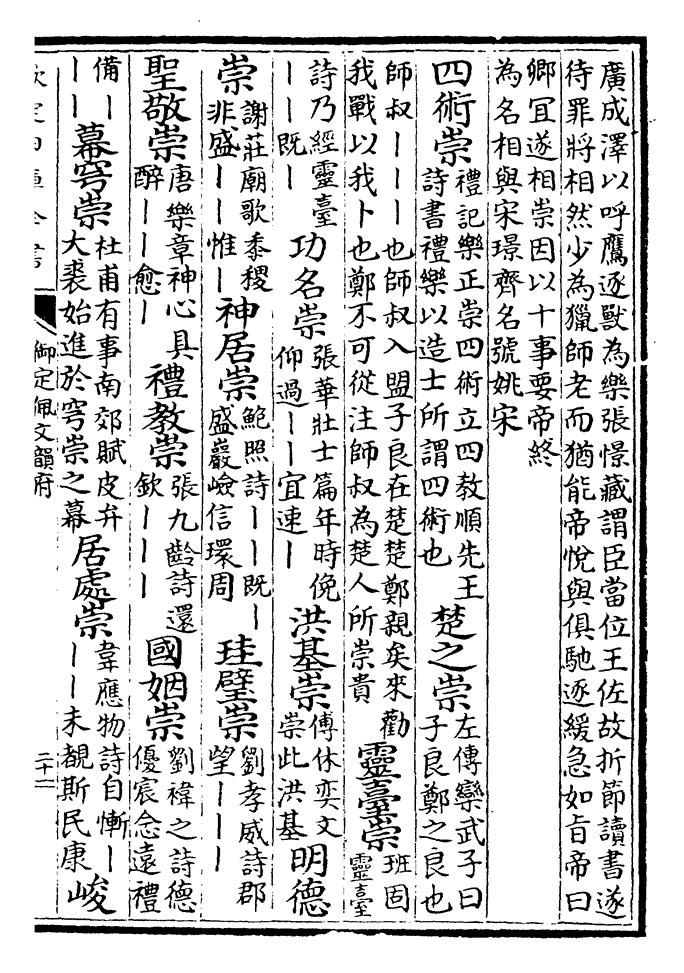 廣成澤以呼鷹逐獸為樂張憬藏謂臣當位王佐故折節讀書遂
待罪將相然少為獵師老而猶能帝悅與俱馳逐緩急如旨帝曰
卿宜遂相崇因以十事要帝終
為名相與宋璟齊名號姚宋
四術崇 禮記樂正崇四術立四教順先王詩書禮樂以造士所謂四術也 楚之崇 左傳欒武子曰子良鄭之良也
師叔丨丨丨也師叔入盟子良在楚楚鄭親矣來勸我戰以我卜也鄭不可從注師叔為楚人所崇貴 靈臺崇 班固靈臺
詩乃經靈臺丨丨既丨 功名崇 張華壯士篇年時俛仰過丨丨宜速丨 洪基崇 傅休奕文崇此洪基 明德
崇 謝莊廟歌黍稷非盛丨丨惟丨 神居崇 鮑照詩丨丨既丨盛巖嶮信環周 珪璧崇 劉孝威詩郡望丨丨丨
聖敬崇 唐樂章神心具醉丨丨愈丨 禮教崇 張九齡詩還欽丨丨丨 國姻崇 劉禕之詩德優宸念遠禮
備丨丨丨 幕穹崇 杜甫有事南郊賦皮弁大裘始進於穹崇之幕 居處崇 韋應物詩自慚丨丨丨未覩斯民康 峻
欽定四庫全書 御定佩文韻府 二十二